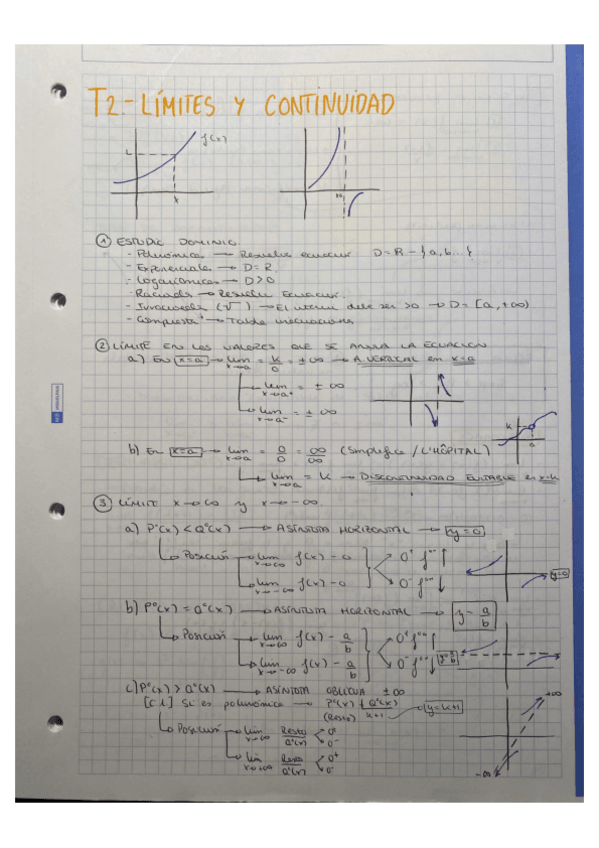 T2.- LÍMITES Y CONTINUIDAD
L f(x)
x
① ESTUDIO DOMINIO
- Polinómica → Resuelve ecuación D=R-{a,b...}
- Exponenciales → D=R
- Logarítmica → D>0
- Racional → Resuelve Ecuación.
- Irracionales (√) → El interior debe ser >0 → D=[a,+∞)
- Compuesta → Tabla inecuaciones
② LÍMITE EN LOS VALORES QUE SE ANULA LA ECUACIÓN
a) En x=a → lim x→a = k/0 = ±∞ → A VERTICAL en x=a
→ lim x→a⁺ = ±∞
→ lim x→a⁻ = ±∞
b) En x=a → lim x→a = 0/0 = ∞/∞ (Simplifico / L'HÔPITAL)
k
→ lim x→a = k → DISCONTINUIDAD EVITABLE en x=k
③ LÍMITE x→∞ y x→-∞
a) Pº(x) < Qº(x) → ASÍNTOTA HORIZONTAL → y=0
→ Posición → lim x→∞ f(x)-0 0⁺
→ lim x→-∞ f(x)-0 0⁻ y=0
b) Pº(x) = Qº(x) → ASÍNTOTA HORIZONTAL → y = a/b
→ Posición → lim x→∞ f(x) - a/b 0⁺
→ lim x→-∞ f(x) - a/b 0⁻ y=a/b
c) Pº(x) > Qº(x) → ASÍNTOTA OBLICUA ±∞
Si es polinómica → Pº(x) Qº(x)
(Resto) +∞
→ Posición → lim x→∞ Resto/Qº(x) 0⁻
→ lim Resto/Qº(x) 0⁺ 0⁻
-∞